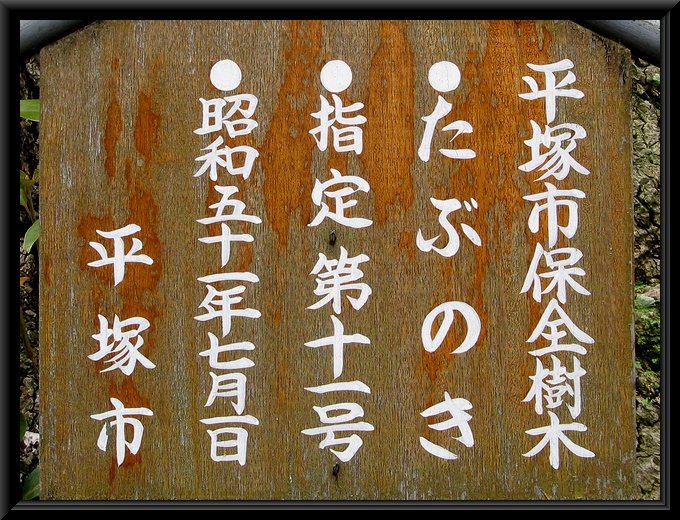 平塚市保全樹木
●たぶのき
●指定第十一号
●昭和五十一年七月一日
平塚市